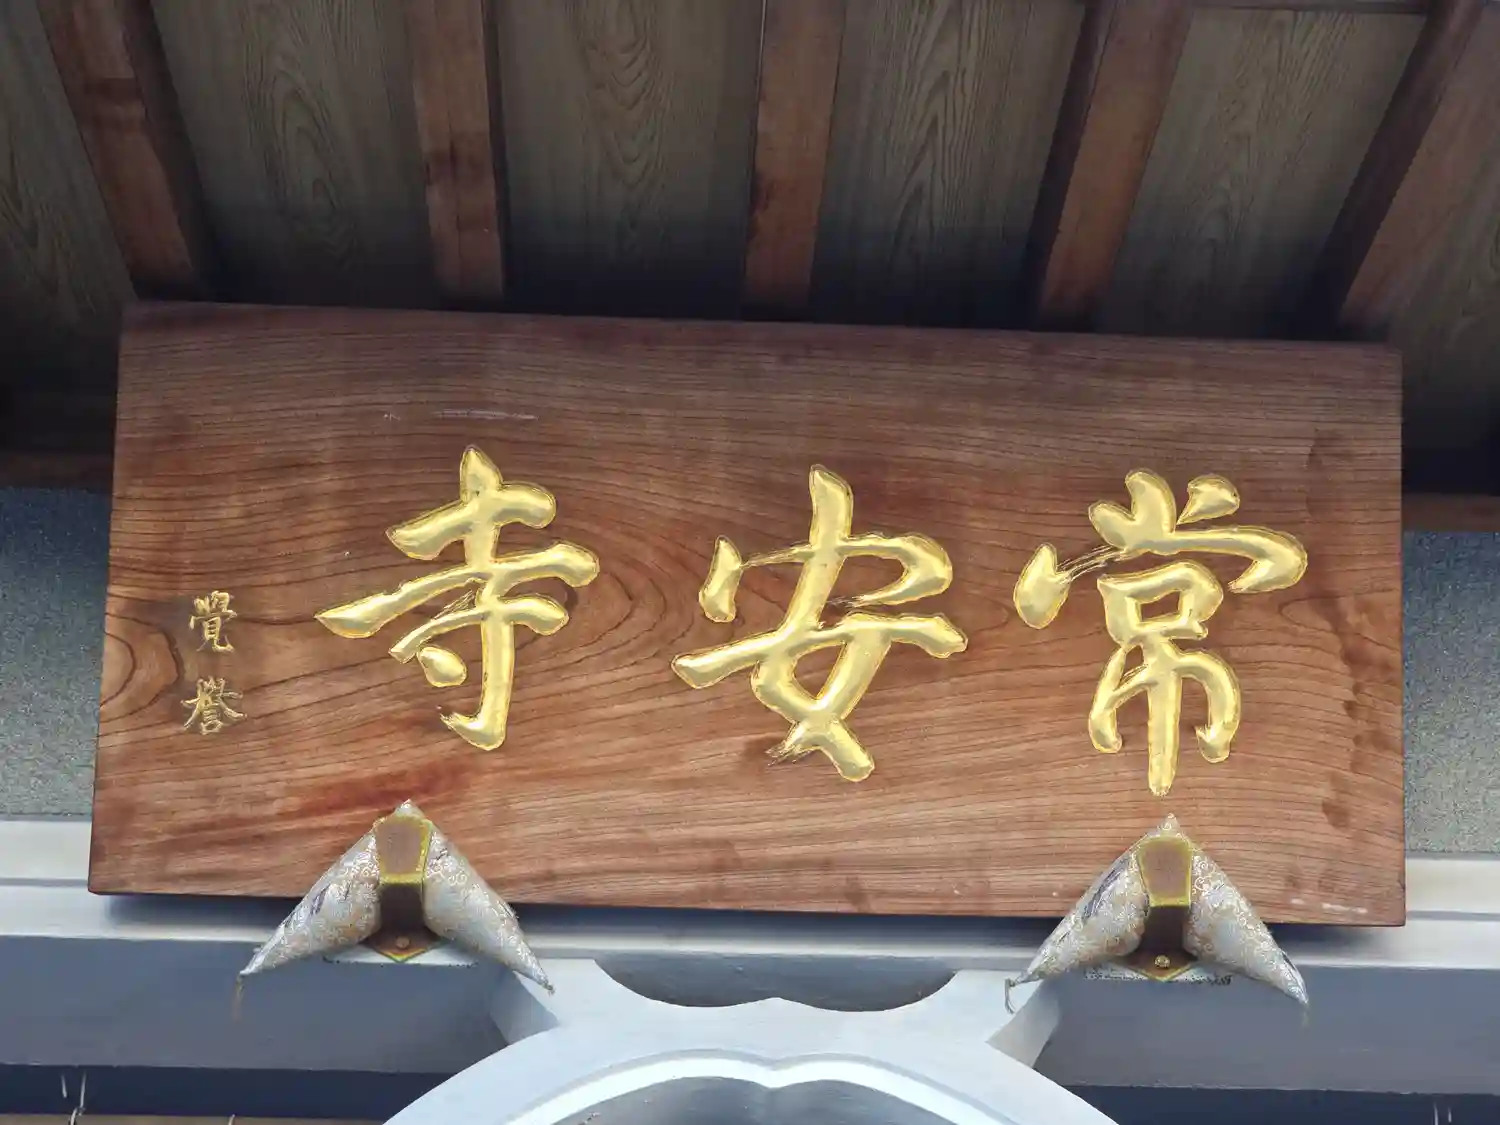 常安寺
覺譽